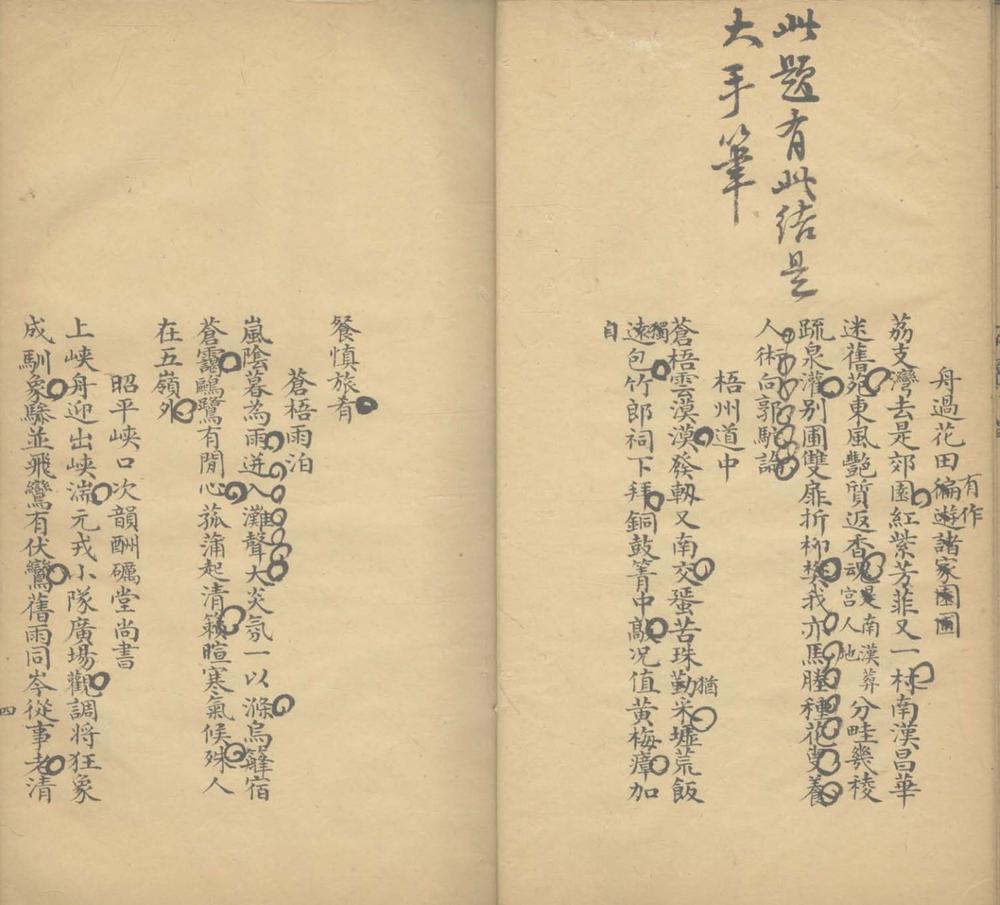 此題有此結是
大手筆
舟過花田徧遊諸家園圃
有作
荔支灣去是郊園紅紫芳菲又一村南漢昌華
迷舊苑東風艷質返香魂是南漢葬宮人地分畦幾稜
疏泉灌別圃雙扉折柳樊我亦馬塍種花叟養
人術向郭駝論
梧州道中
蒼梧雲漠漠發軔又南交蜑苦珠勤采墟荒飯
猶
獨
遠包竹郎祠下拜銅鼓箐中敲況值黃梅瘴加
自
餐慎旅肴
蒼梧雨泊
嵐陰暮為雨迸入灘聲大炎氛一以滌烏篷宿
蒼靄鷗鷺有閒心菰蒲起清籟暄寒氣候殊人
在五嶺外
昭平峽口次韻酬礪堂尚書
上峽舟迎出峽湍元戎小隊廣場觀調將狂象
成馴象驂並飛鸞有伏鸞舊雨同岑從事老清
四